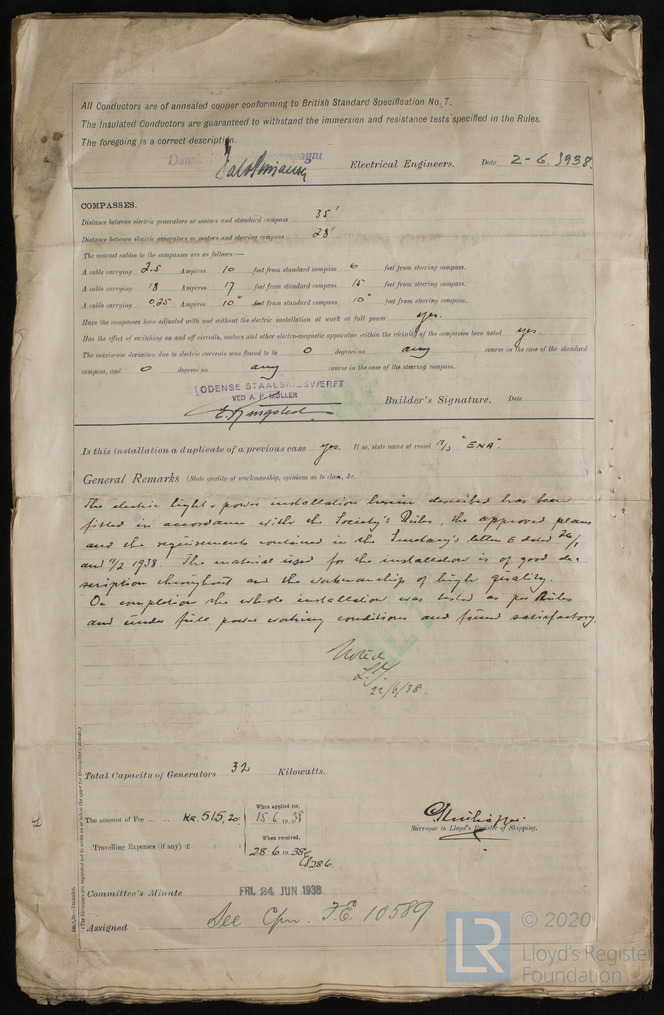 All Conductors are of annealed copper conforming to British Standard Specification No. 7.
The Insulated Conductors are guaranteed to withstand the immersion and resistance tests specified in the Rules.
The foregoing is a correct description.
Dansk
Electrical Engineers. Date 2-6.1938.
COMPASSES.
Distance between electric generators or motors and standard compass 35'
Distance between electric generators or motors and steering compass 28'
The nearest cables to the compasses are as follows:—
A cable carrying 2.5 Ampères 10 feet from standard compass 6 feet from steering compass.
A cable carrying 18 Ampères 17 feet from standard compass 15 feet from steering compass.
A cable carrying 0,25 Ampères 10" feet from standard compass 10" feet from steering compass.
Have the compasses been adjusted with and without the electric installation at work at full power yes.
Has the effect of switching on and off circuits, motors and other electro-magnetic apparatus within the vicinity of the compasses been noted yes.
The maximum deviation due to electric currents was found to be 0 degrees on any course in the case of the standard
compass, and 0 degrees on any course in the case of the steering compass.
ODENSE STAALSKIBSVÆRFT
VED A. P. MØLLER
Builder's Signature. Date
Is this installation a duplicate of a previous case yes. If so, state name of vessel M/S "ENA".
General Remarks (State quality of workmanship, opinions as to class, &c.
The electric light & power installation herein described has been
fitted in accordance with the Society's Rules, the approved plans
and the requirements contained in the Secretary's letter E dated 26/1
and 11/2 1938. The material used for the installation is of good de-
scription throughout and the workmanship of high quality.
On completion the whole installation was tested as per Rules
and under full power working conditions and found satisfactory.
Noted
22/6/38.
Total Capacity of Generators 32 Kilowatts.
The amount of Fee ... ... KR. 515,20:
When applied for,
15.6.1938
Travelling Expenses (if any) £ : :
When received,
28.6.1938
28.6.
Surveyor to Lloyd's Register of Shipping.
Committee's Minute FRI. 24 JUN 1938
Assigned See Cpn. F.E. 10589
LR © 2020
Lloyd's Register
Foundation